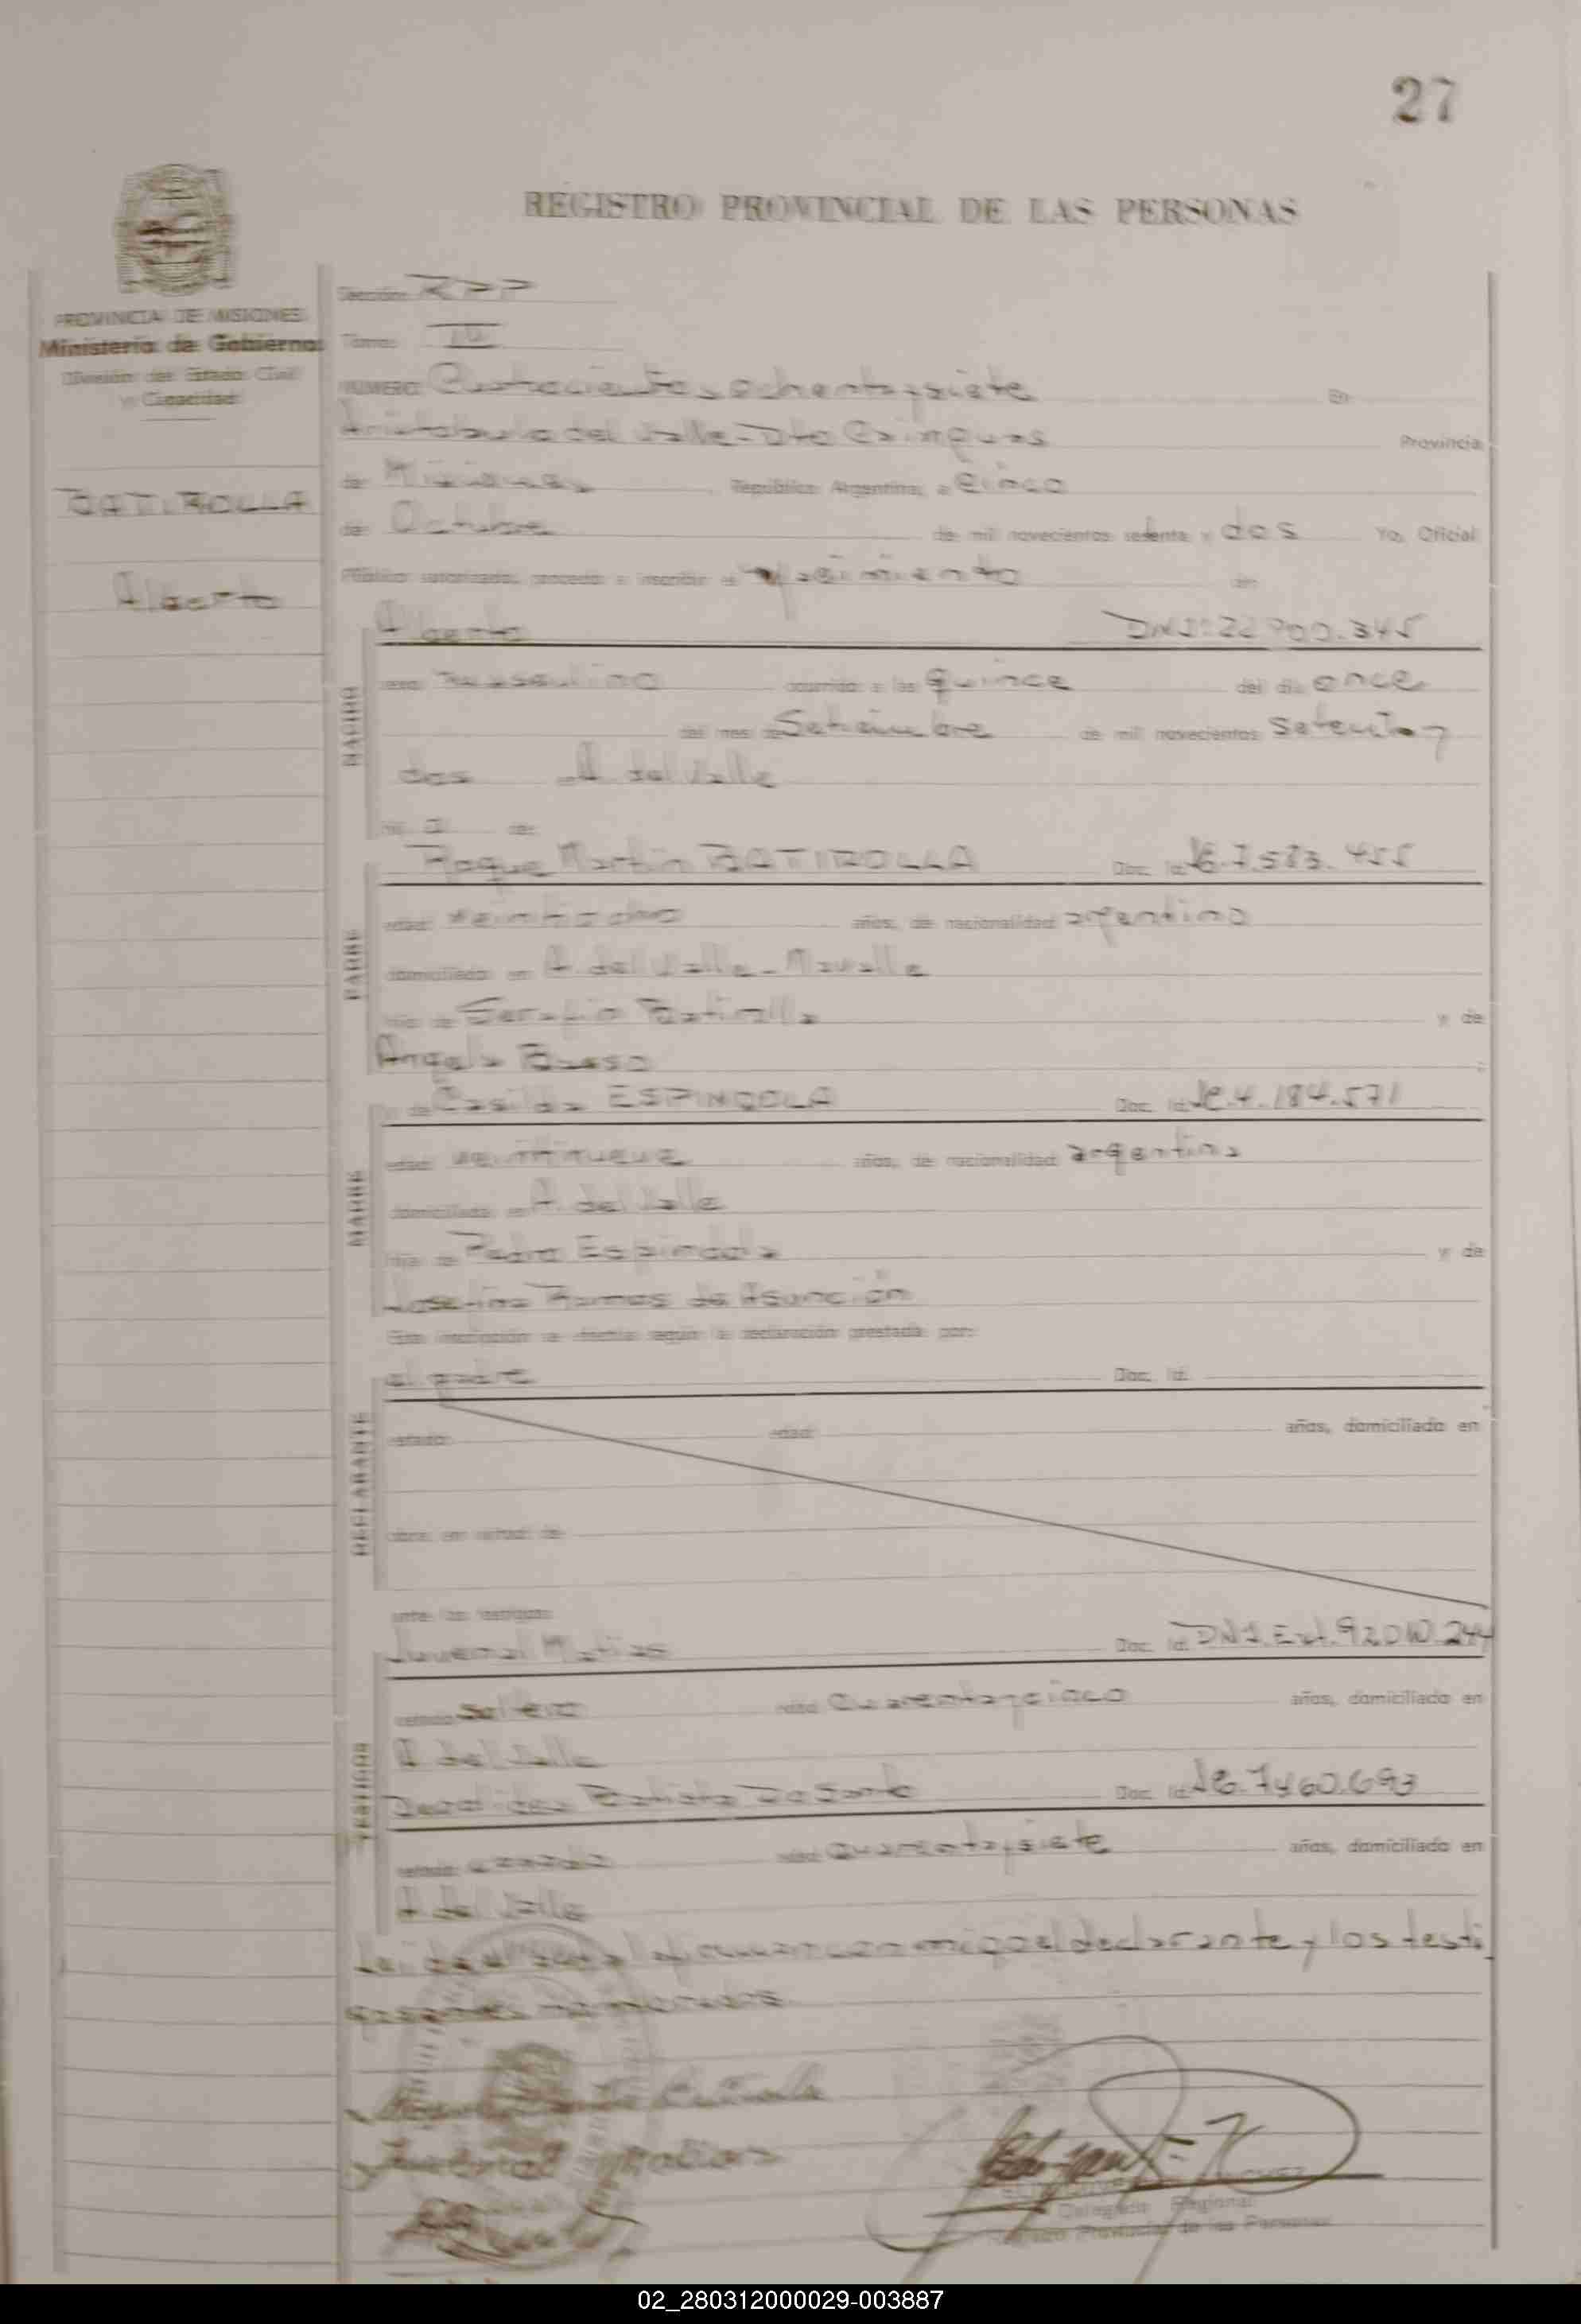 27
REGISTRO PROVINCIAL DE LAS PERSONAS
PROVINCIA DE MISIONES
Ministerio de Gobierno
División del Estado Civil
y Capacidad
BATIROLLA
Alberto
Sección RPP
Tomo III
NUMERO Cuatrocientos ochenta y siete En
Aristobulo del Valle - Dto Cainguas Provincia
de Misiones República Argentina, a Cinco
de Octubre de mil novecientos setenta y dos Yo, Oficial
Público autorizado, procedo a inscribir el Nacimiento de
Alberto DNI: 22.900.345
sexo masculino ocurrido a las quince del día once
del mes de Setiembre de mil novecientos setenta y
dos A. del Valle
NACIDO
hijo de
Roque Martin BATIROLLA Doc. Id. 7.583.455
edad años, de nacionalidad argentino
domiciliado en A. del Valle -
hijo de Serafin Batirolla y de
Angela
PADRE
y de Casilda ESPINDOLA Doc. Id. 4.184.571
edad veintinueve años, de nacionalidad argentina
domiciliada en A. del Valle
hija de Pedro Espindola y de
Josefina Ramos de Asunción
MADRE
Esta inscripción se efectúa según la declaración prestada por:
el padre Doc. Id.
estado edad años, domiciliado en
obra en virtud de
DECLARANTE
ante los testigos:
Juvenal Matias Doc. Id. DNI. Ext. 244
estado soltero edad Cuarenta y cinco años, domiciliado en
A. del Valle
Batista Do Doc. Id. 7460.693
estado casado edad Cuarenta y siete años, domiciliado en
A. del Valle
TESTIGOS
Leida el acta la firman conmigo el declarante y los testi
gos
Juvenal Matias
Delegado Regional
Registro Provincial de las Personas
02_280312000029-003887